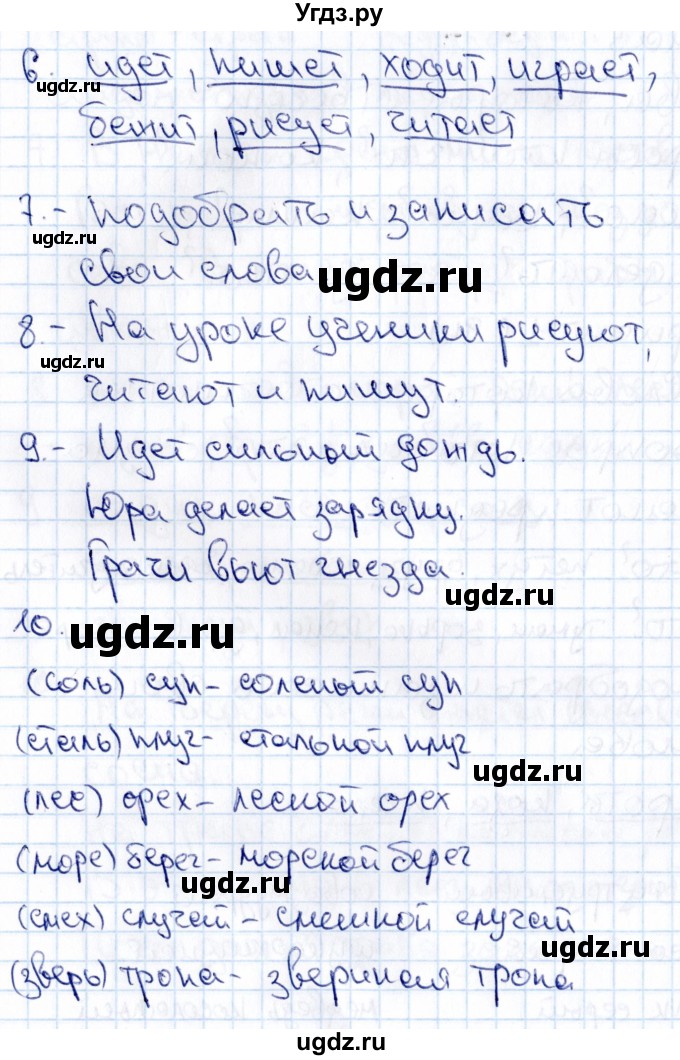 Угдз.ру
6. идет, пишет, ходит, играет,
ugdz.ru
бежит, рисует, читает
7.- подобрать и записать
ugdz.ru
свои слова
ugdz.ru
8.- На уроке ученики рисуют,
ugdz.ru
читают и пишут.
9.- Идет сильный дождь.
Юра делает зарядку.
Грачи вьют гнезда.
ugdz.ru
10.
ugdz.ru
(соль) суп - соленый суп
(сталь) плуг - стальной плуг
ugdz.ru
(лес) орех - лесной орех
(море) берег - морской берег
ugdz.ru
(смех) случай - смешной случай
ugdz.ru
(зверь) тропа - звериная тропа
ugdz.ru